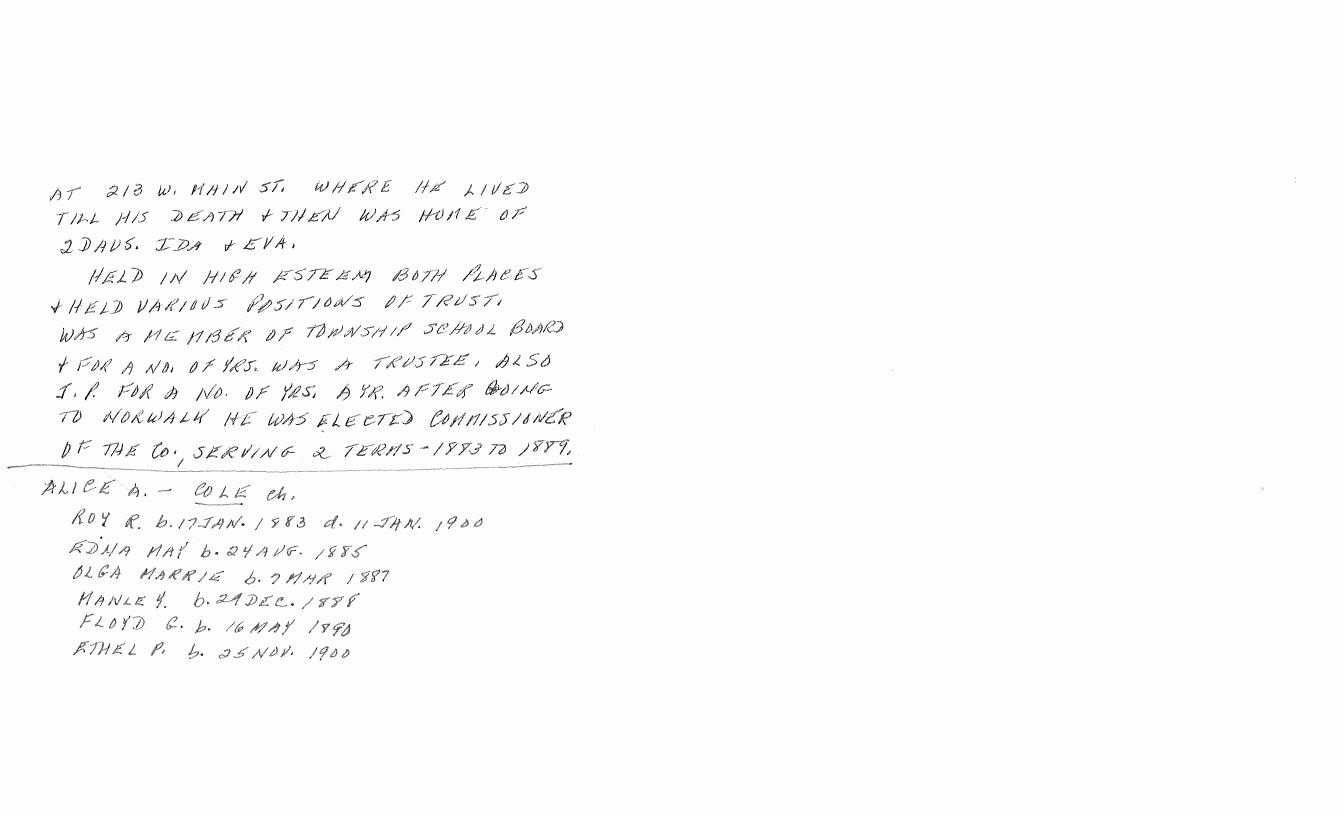 AT 213 W. MAIN ST. WHERE HE LIVED
TILL HIS DEATH & THEN WAS HOME OF
2 DAUS. IDA & EVA.
HELD IN HIGH ESTEEM BOTH PLACES
& HELD VARIOUS POSITIONS OF TRUST.
WAS A MEMBER OF TOWNSHIP SCHOOL BOARD
& FOR A NO. OF YRS. WAS A TRUSTEE. ALSO
J.P. FOR A NO. OF YRS. A YR. AFTER GOING
TO NORWALK HE WAS ELECTED COMMISSIONER
OF THE CO., SERVING 2 TERMS - 1883 TO 1889.
ALICE A. - COLE ch.
ROY R. b. 17 JAN. 1883 d. 11 JAN. 1900
EDNA MAY b. 24 AUG. 1885
OLGA MARRIE b. 7 MAR 1887
MANLEY. b. 29 DEC. 1888
FLOYD G. b. 16 MAY 1890
ETHEL P. b. 25 NOV. 1900